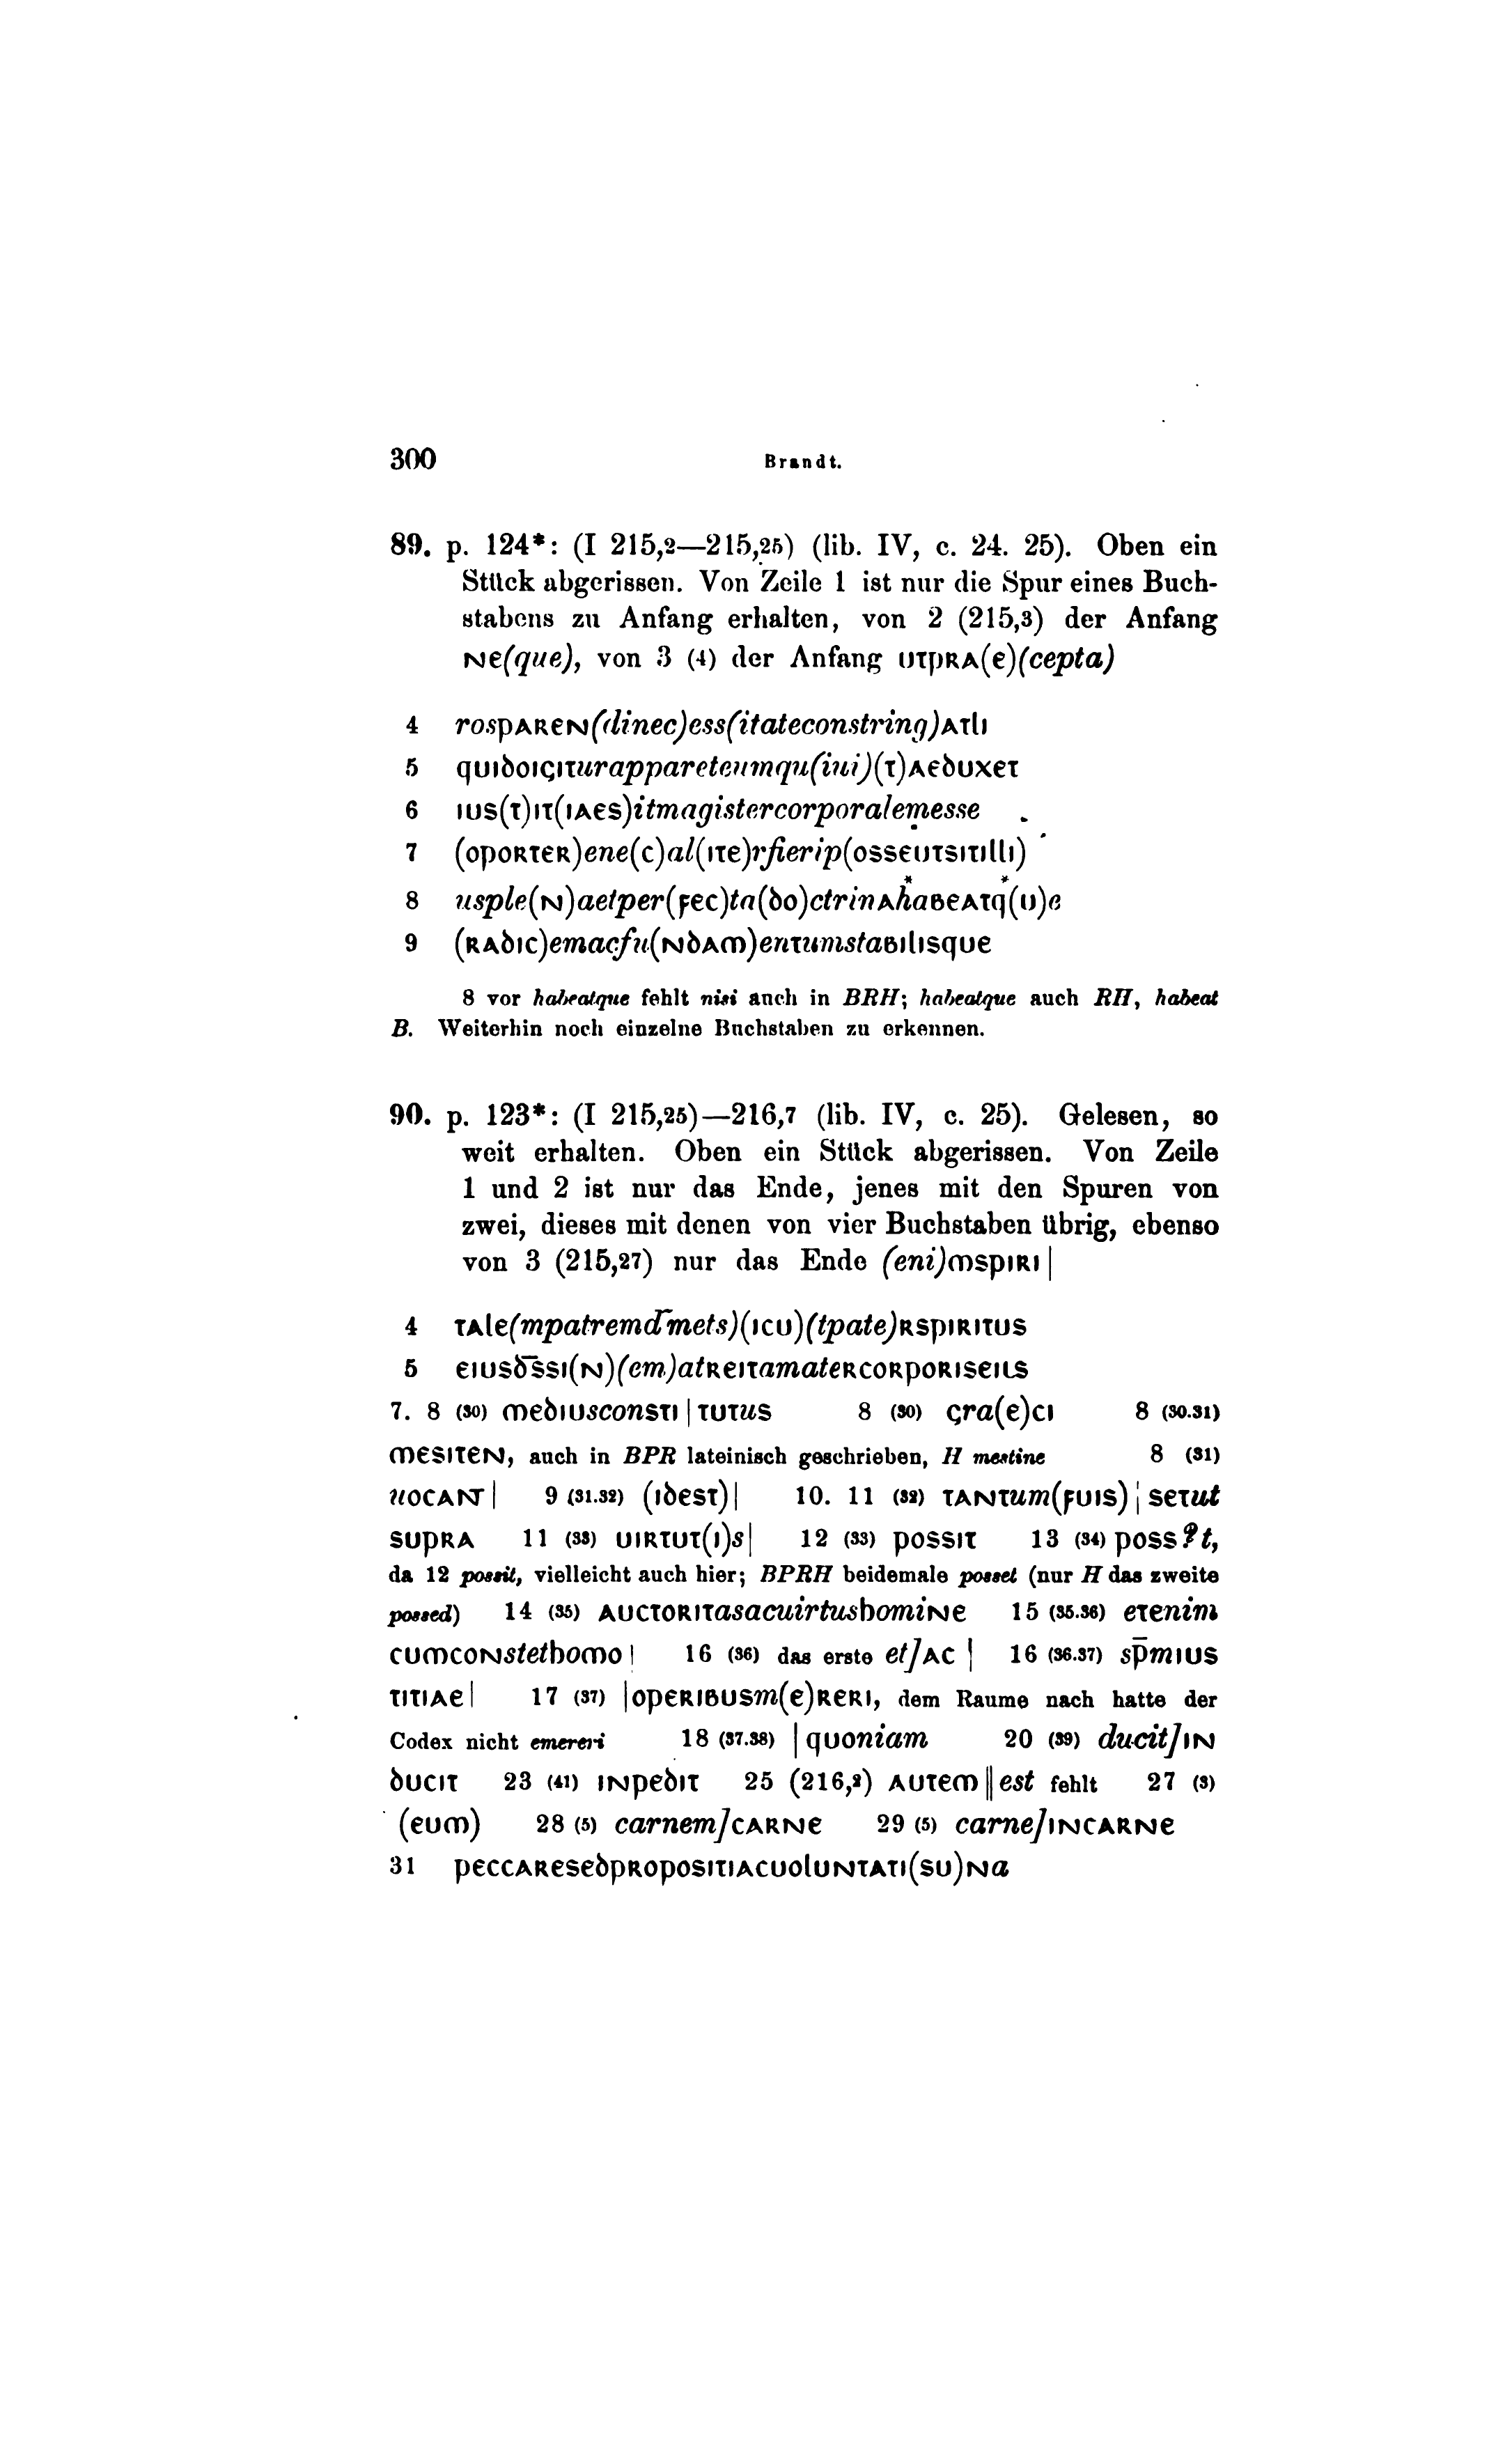 300 Brandt.
89. p. 124*: (I 215,2—215,25) (lib. IV, c. 24. 25). Oben ein
Stück abgerissen. Von Zeile 1 ist nur die Spur eines Buch-
stabens zu Anfang erhalten, von 2 (215,3) der Anfang
NE(que), von 3 (4) der Anfang UTPRA(E)(cepta)
4 rosPAREN(dinec)ess(itateconstring)ATLI
5 QUIDOIGITurappareteumqu(iui)(T)AEDUXET
6 IUS(T)IT(IAES)itmagistercorporalemesse
7 (OPORTER)ene(C)al(ITE)rfierip(OSSEUTSITILLI)
8 usple(N)aetper(FEC)ta(DO)ctrinAhaBEATQ(U)e
9 (RADIC)emacfu(NDAM)enTumstaBILISQUE
8 vor habeatque fehlt nisi auch in BRH; habeatque auch RH, habeat
B. Weiterhin noch einzelne Buchstaben zu erkennen.
90. p. 123*: (I 215,25)—216,7 (lib. IV, c. 25). Gelesen, so
weit erhalten. Oben ein Stück abgerissen. Von Zeile
1 und 2 ist nur das Ende, jenes mit den Spuren von
zwei, dieses mit denen von vier Buchstaben übrig, ebenso
von 3 (215,27) nur das Ende (eni)MSPIRI|
4 TALE(mpatremd̅mets)(ICU)(tpate)RSPIRITUS
5 EIUSD̅S̅SI(N)(em)atREITamateRCORPORISEILS
7. 8 (30) MEDIUsconSTI|TUTuS 8 (30) Gra(E)CI 8 (30.31)
MESITEN, auch in BPR lateinisch geschrieben, H mestine 8 (31)
uOCANT| 9 (31.32) (IDEST)| 10. 11 (32) TANTum(FUIS)|SETut
SUPRA 11 (33) UIRTUT(I)s| 12 (33) POSSIT 13 (34) POSS?t,
da 12 possit, vielleicht auch hier; BPRH beidemale posset (nur H das zweite
possed) 14 (35) AUCTORITasacuirtusHomiNE 15 (35.36) eTenim
CUMCONstetHOMO| 16 (36) das erste et]AC | 16 (36.37) sp̅mIUS
TITIAE| 17 (37) |OPERIBUSm(E)RERI, dem Raume nach hatte der
Codex nicht emereri 18 (37.38) |QUOniam 20 (39) ducit]IN
DUCIT 23 (41) INPEDIT 25 (216,2) AUTEM||est fehlt 27 (3)
(EUM) 28 (5) carnem]CARNE 29 (5) carne]INCARNE
31 PECCARESEDPROPOSITIACUOLUNTATI(SU)Na